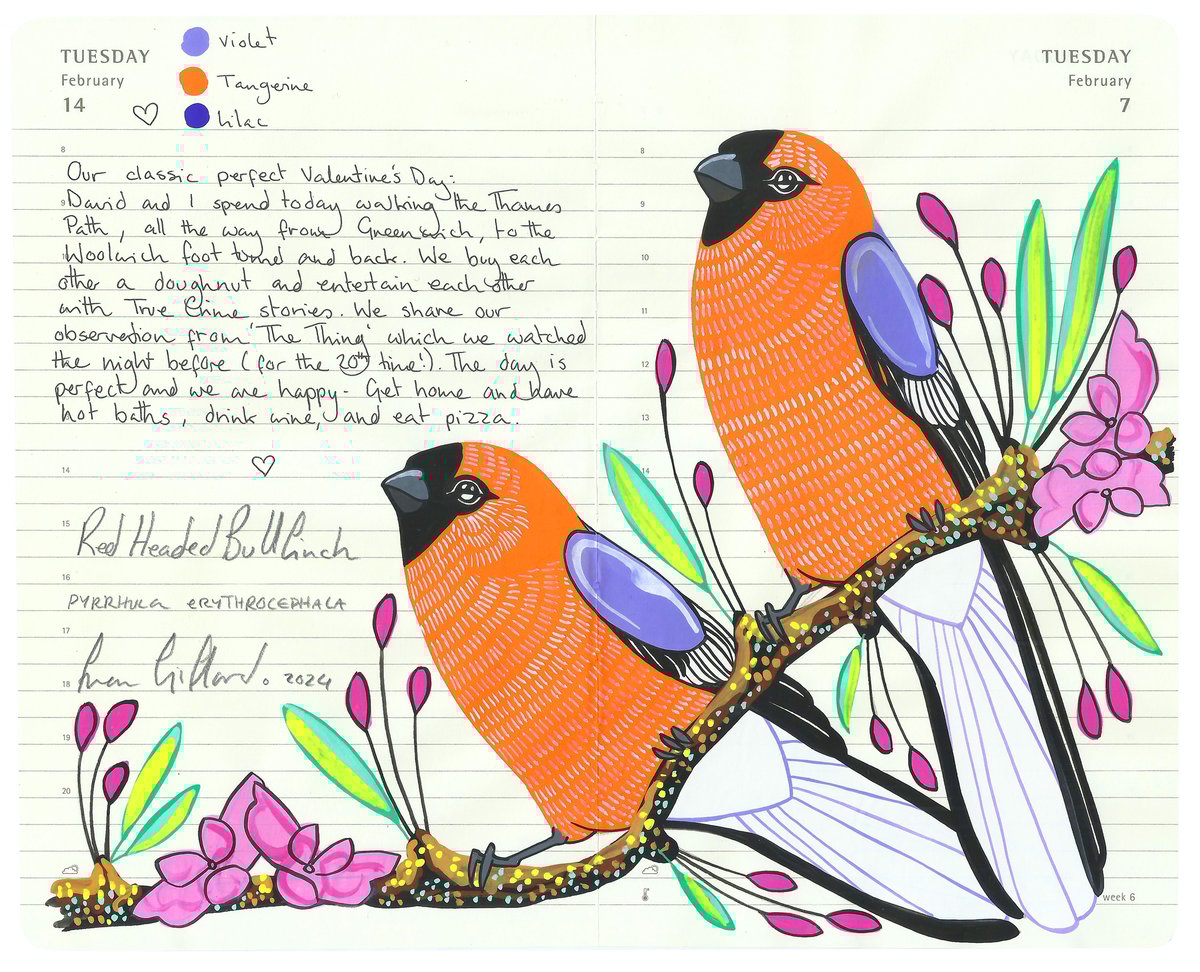 TUESDAY
February
14
violet
Tangerine
Lilac
8
Our classic perfect Valentine's Day:
9
David and I spend today walking the Thames
Path, all the way from Greenwich, to the
Woolwich foot tunnel and back. We buy each
other a doughnut and entertain each other
with True Crime stories. We share our
observation from 'The Thing' which we watched
the night before (for the 20th time!). The day is
perfect and we are happy. Get home and have
hot baths, drink wine, and eat pizza.
14
15
Red Headed Bullfinch
16
PYRRHULA ERYTHROCEPHALA
17
18
2024
19
20
TUESDAY
February
7
8
9
10
11
12
13
14
week 6